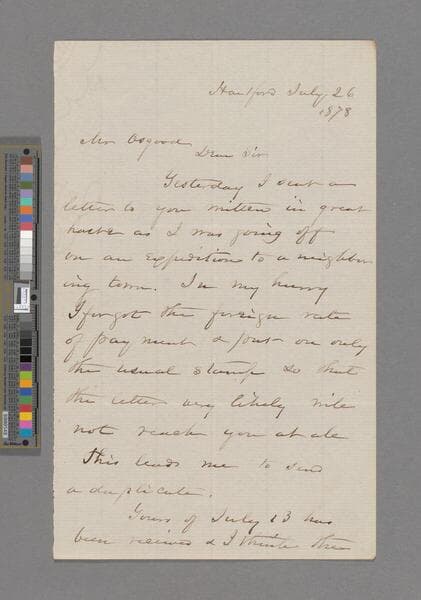 Hartford July 26
1878
Mr Osgood
Dear Sir
Yesterday I sent a
letter to you written in great
haste as I was going off
on an expedition to a neighbor
ing town. In my hurry
I forgot the foreign rate
of payment & put on only
the usual stamp so that
the letter very likely will
not reach you at all
This leads me to send
a duplicate.
Yours of July 13 has
been received & I think the